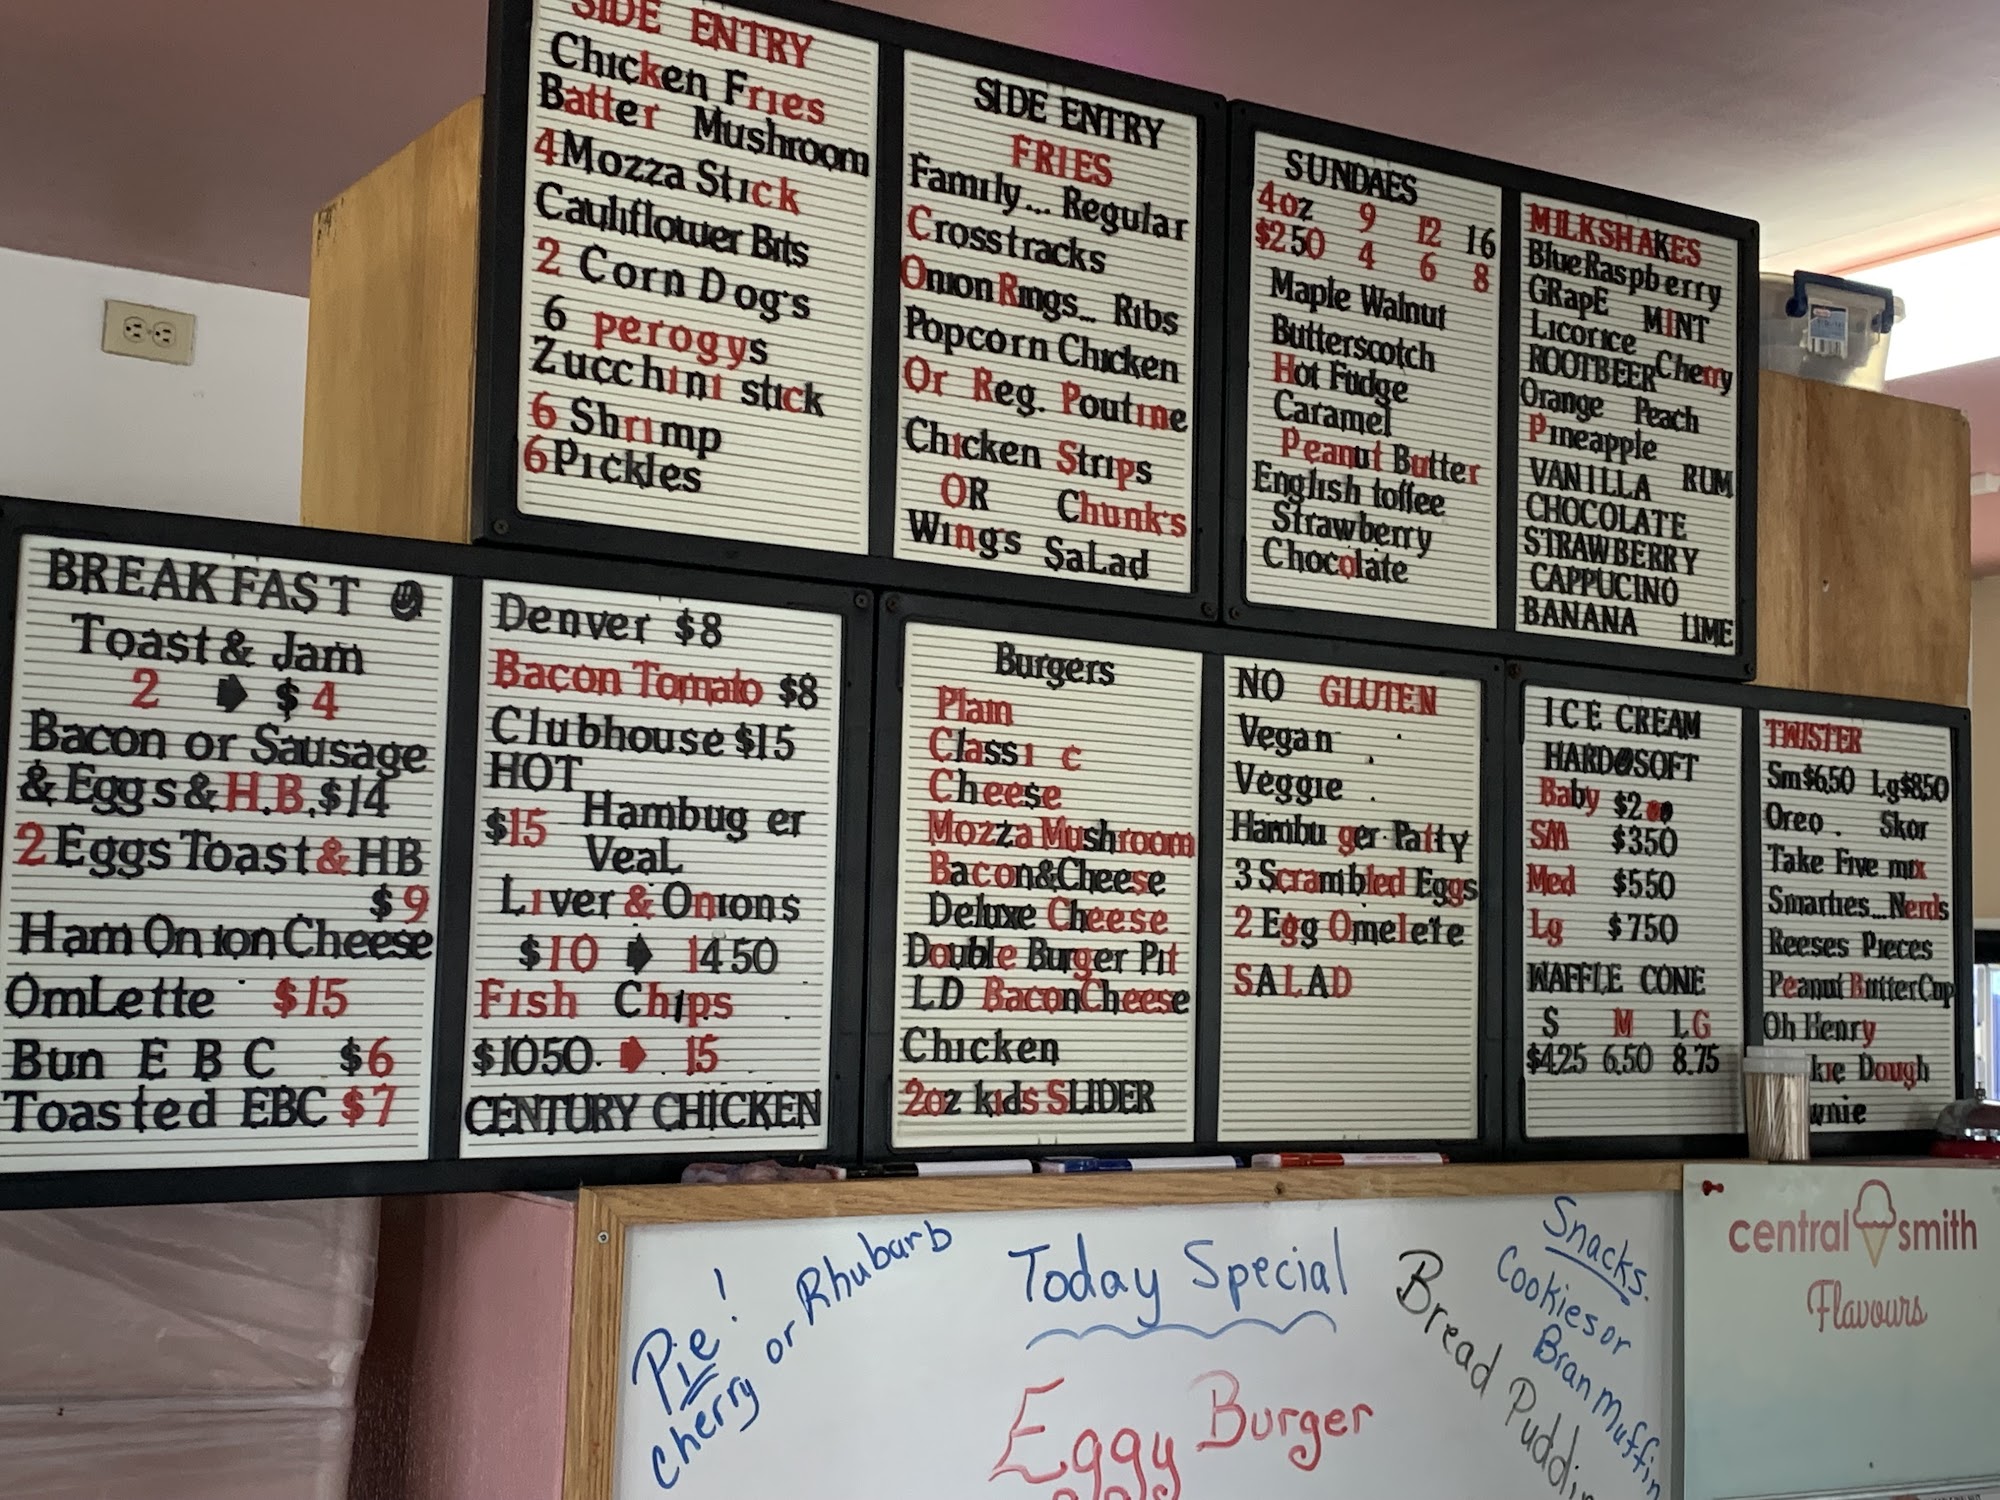 SIDE ENTRY
Chicken Fries
Batter Mushroom
4 Mozza Stick
Cauliflower Bits
2 Corn Dog's
6 perogys
Zucchini stick
6 Shrimp
6 Pickles
SIDE ENTRY
FRIES
Family... Regular
Crosstracks
Onion Rings... Ribs
Popcorn Chicken
Or Reg. Poutine
Chicken Strips
OR Chunk's
Wing's SaLad
SUNDAES
4oz 9 12 16
$250 4 6 8
Maple Walnut
Butterscotch
Hot Fudge
Caramel
Peanut Butter
English toffee
Strawberry
Chocolate
MILKSHAKES
Blue Raspberry
GRapE MINT
Licorice Cherry
ROOTBEER
Orange Peach
Pineapple
VANILLA RUM
CHOCOLATE
STRAWBERRY
CAPPUCINO
BANANA LIME
BREAKFAST
Toast & Jam
2 $4
Bacon or Sausage
& Eggs & H.B. $14
2 Eggs Toast & HB
$9
Ham Onion Cheese
OmLette $15
Bun E B C $6
Toasted EBC $7
Denver $8
Bacon Tomato $8
Clubhouse $15
HOT
$15 Hambug er
VeaL
Liver & Onions
$10 1450
Fish Chips
$1050. 15
CENTURY CHICKEN
Burgers
Plain
Classi c
Cheese
Mozza Mushroom
Bacon&Cheese
Deluxe Cheese
Double Burger Pit
LD BaconCheese
Chicken
2oz kids SLIDER
NO GLUTEN
Vegan
Veggie
Hambu ger Patty
3 Scrambled Eggs
2 Egg Omelete
SALAD
ICE CREAM
HARD SOFT
Baby $2
SM $350
Med $550
Lg $750
WAFFLE CONE
S M LG
$425 6.50 8.75
TWISTER
Sm$6.50 Lg$850
Oreo . Skor
Take Five mix
Smarties...Nerds
Reeses Pieces
Peanut Butter Cup
Oh Henry
kie Dough
wnie
Pie!
Cherry or Rhubarb
Today Special
Eggy Burger
Bread Puddin
Snacks.
Cookies or
Bran Muffin
central smith
Flavours